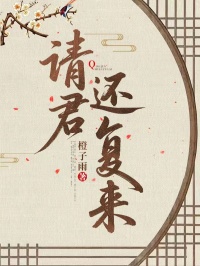 请君
还复来
橙子雨 著